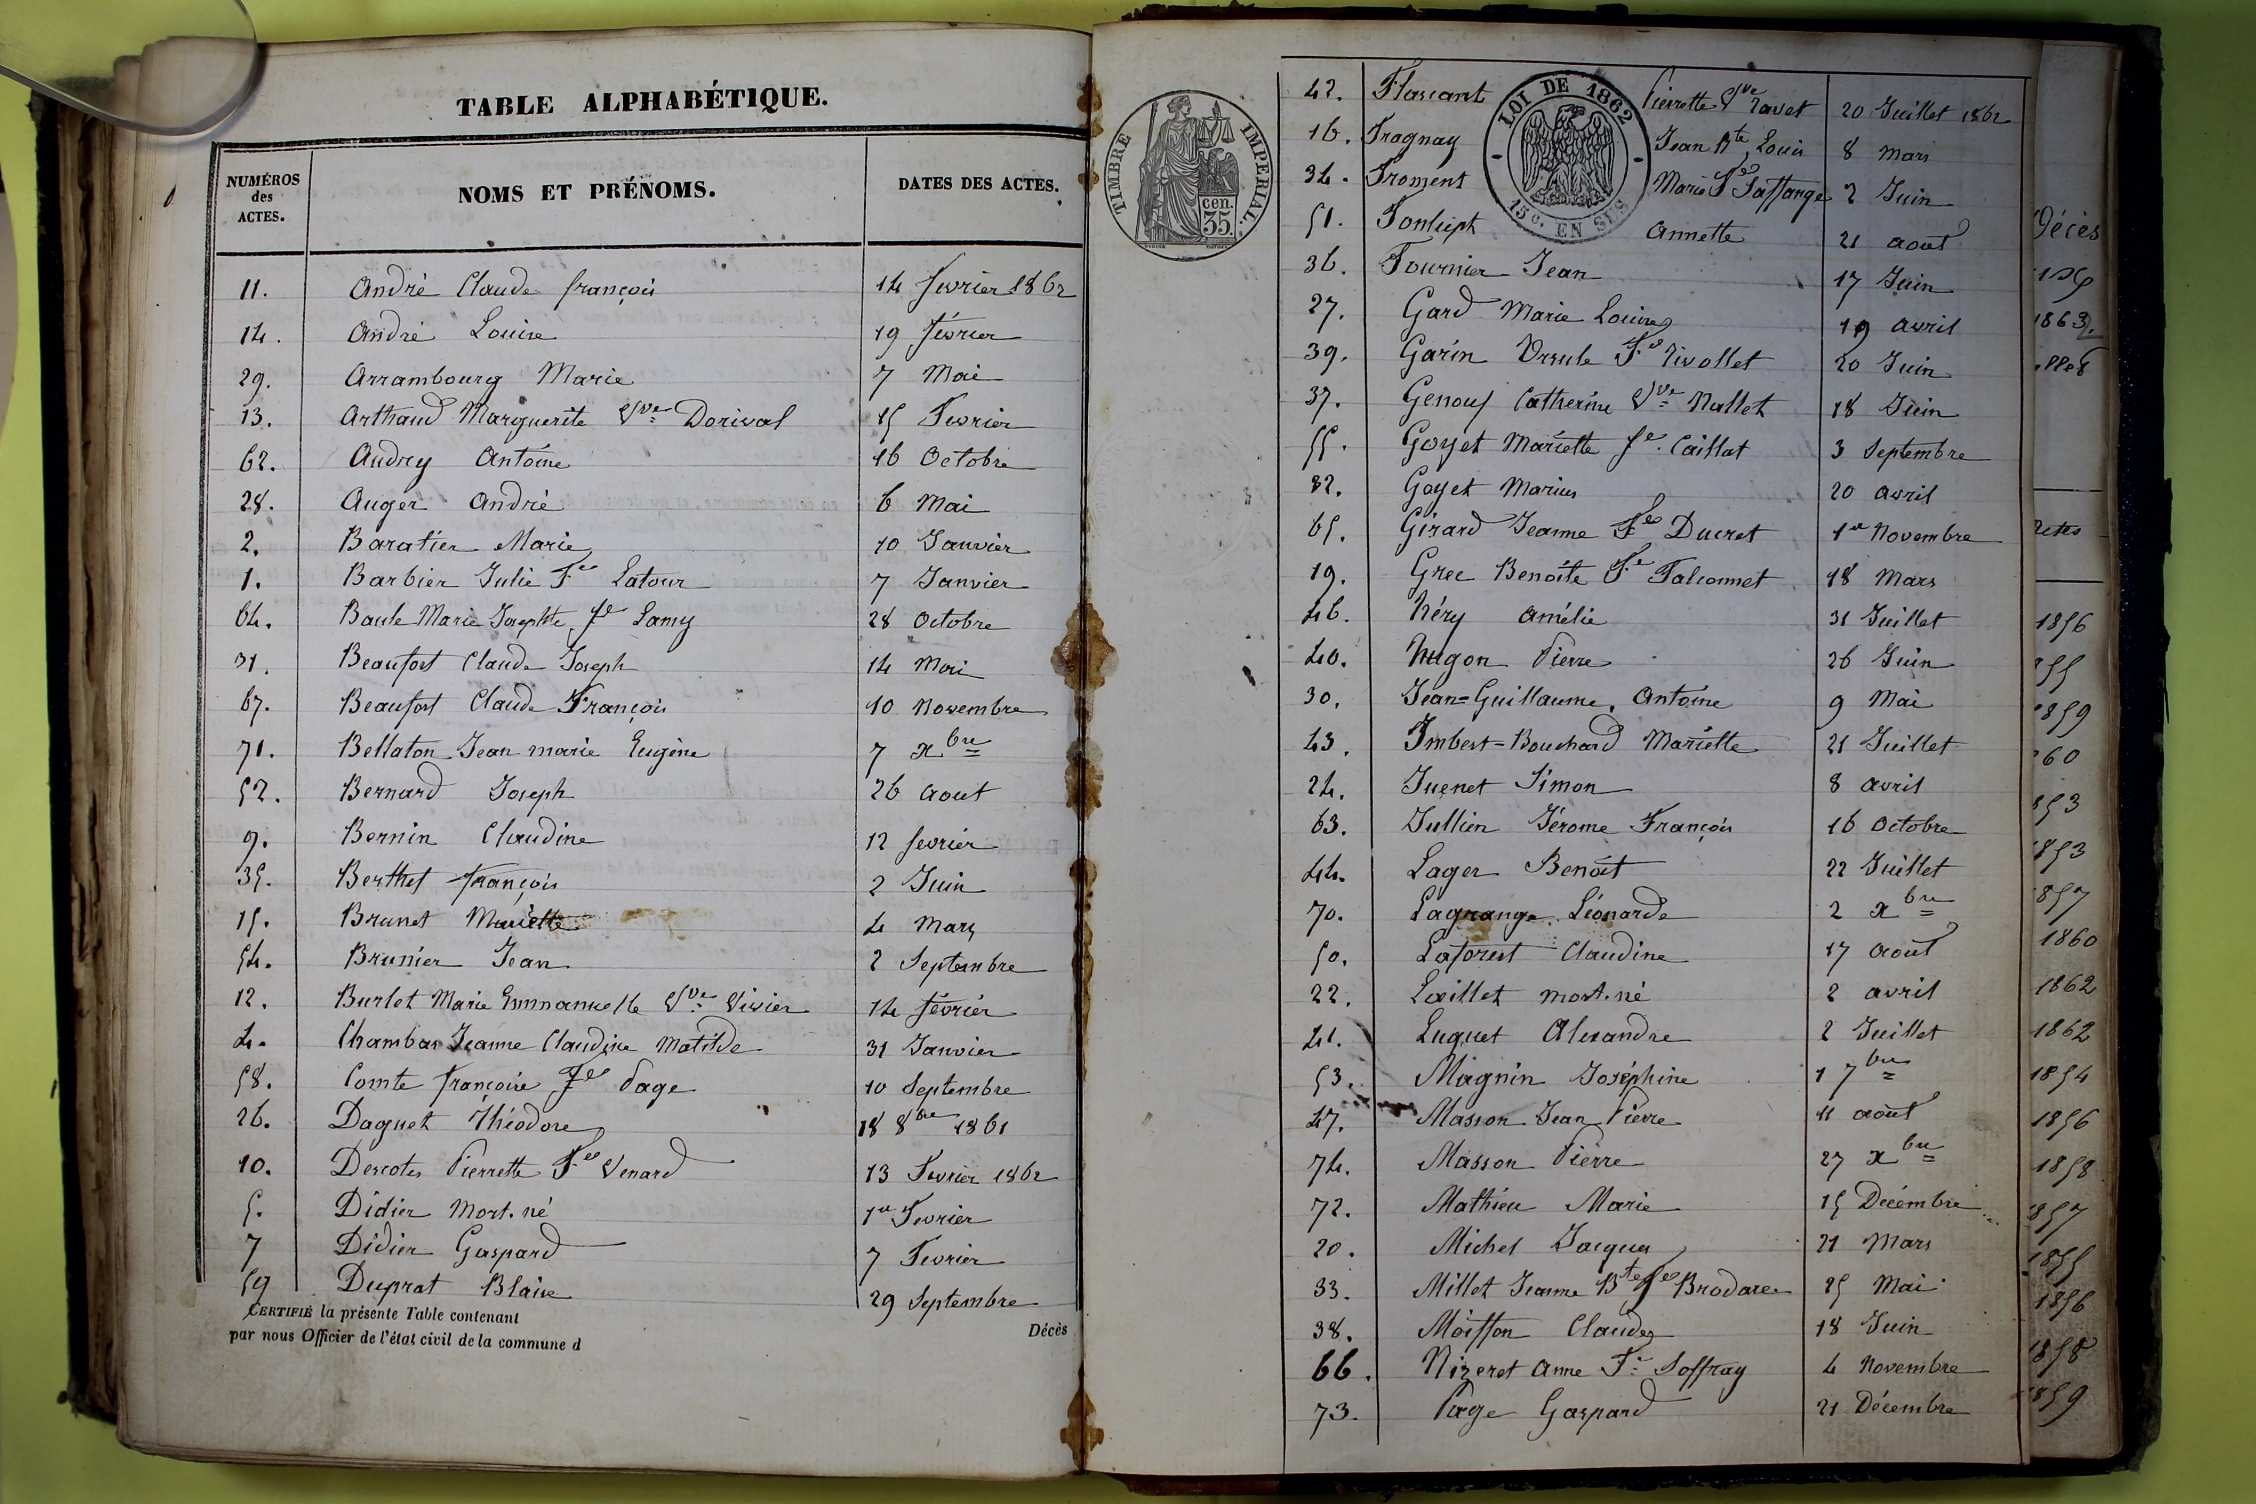 TABLE ALPHABÉTIQUE.
NUMÉROS
des
ACTES.
NOMS ET PRÉNOMS.
DATES DES ACTES.
11. André Claude françois 14 fevrier 1862
14. André Louise 19 février
29. Arrambourg Marie 7 Mai
13. Arthaud Marguerite Vve Dorival 15 Fevrier
62. Audry Antoine 16 Octobre
28. Auger André 6 Mai
2. Baratier Marie 10 Janvier
1. Barbier Julie Fe Latour 7 Janvier
64. Baule Marie Josephte fe Lamy 28 Octobre
31. Beaufort Claude Joseph 14 Mai
67. Beaufort Claude François 10 Novembre
71. Bellaton Jean marie Eugène 7 xbre
52. Bernard Joseph 26 Aout
9. Bernin Claudine 12 fevrier
35. Berthet françois 2 Juin
15. Brunet Mariette 4 Mars
54. Brunier Jean 2 Septembre
12. Burlet Marie Emmanuelle Vve Vivier 14 février
4. Chambas Jeanne Claudine Matilde 31 Janvier
58. Comte françoise fe Page 10 Septembre
26. Daguet Théodore 18 8bre 1861
10. Descotes Pierrette Fe Venard 13 Fevrier 1862
5. Didier Mort.né 1er Fevrier
7 Didier Gaspard 7 Fevrier
59 Duprat Blaise 29 Septembre
CERTIFIÉ la présente Table contenant
Décès
par nous Officier de l'état civil de la commune d
TIMBRE IMPERIAL.
35 cen.
LOI DE 1862
15 c. EN SUS
42. Flascant Pierrette Vve Ravet 20 Juillet 1862
16. Fragnay Jean Bte Louis 8 Mars
34. Froment Marie Fe Laffange 2 Juin
51. Fonlupt Annette 21 aout
36. Fournier Jean 17 Juin
27. Gard Marie Louise 19 avril
39. Garin Ursule Fe Rivollet 20 Juin
37. Genouf Catherine Vve Mallet 18 Juin
55. Goyet Mariette fe Caillat 3 Septembre
32. Goyet Marius 20 avril
65. Girard Jeanne Fe Ducret 1er Novembre
19. Grec Benoite Fe Falconnet 18 Mars
46. Héry Amélie 31 Juillet
40. Hugon Pierre 26 Juin
30. Jean=Guillaume Antoine 9 Mai
43. Imbert=Bouchard Mariette 21 Juillet
24. Juenet Simon 8 avril
63. Jullien Jérome François 16 Octobre
44. Lager Benoit 22 Juillet
70. Lagrange Léonarde 2 xbre
50. Laforest Claudine 17 aout
22. Lœillet mort.né 2 avril
41. Luquet Alexandre 2 Juillet
53. Magnin Joséphine 1 7bre
47. Masson Jean Pierre 11 août
74. Masson Pierre 27 xbre
72. Mathieu Marie 15 Décembre
20. Michel Jacques 21 Mars
33. Millet Jeanne Bte fe Brodare 25 Mai
38. Moisson Claude 18 Juin
66. Nizeret Anne Fe Soffray 4 Novembre
73. Page Gaspard 21 Décembre
Décès
1863
1856
1860
1862
1862
1854
1856
1858
1855
1856
1858
1859